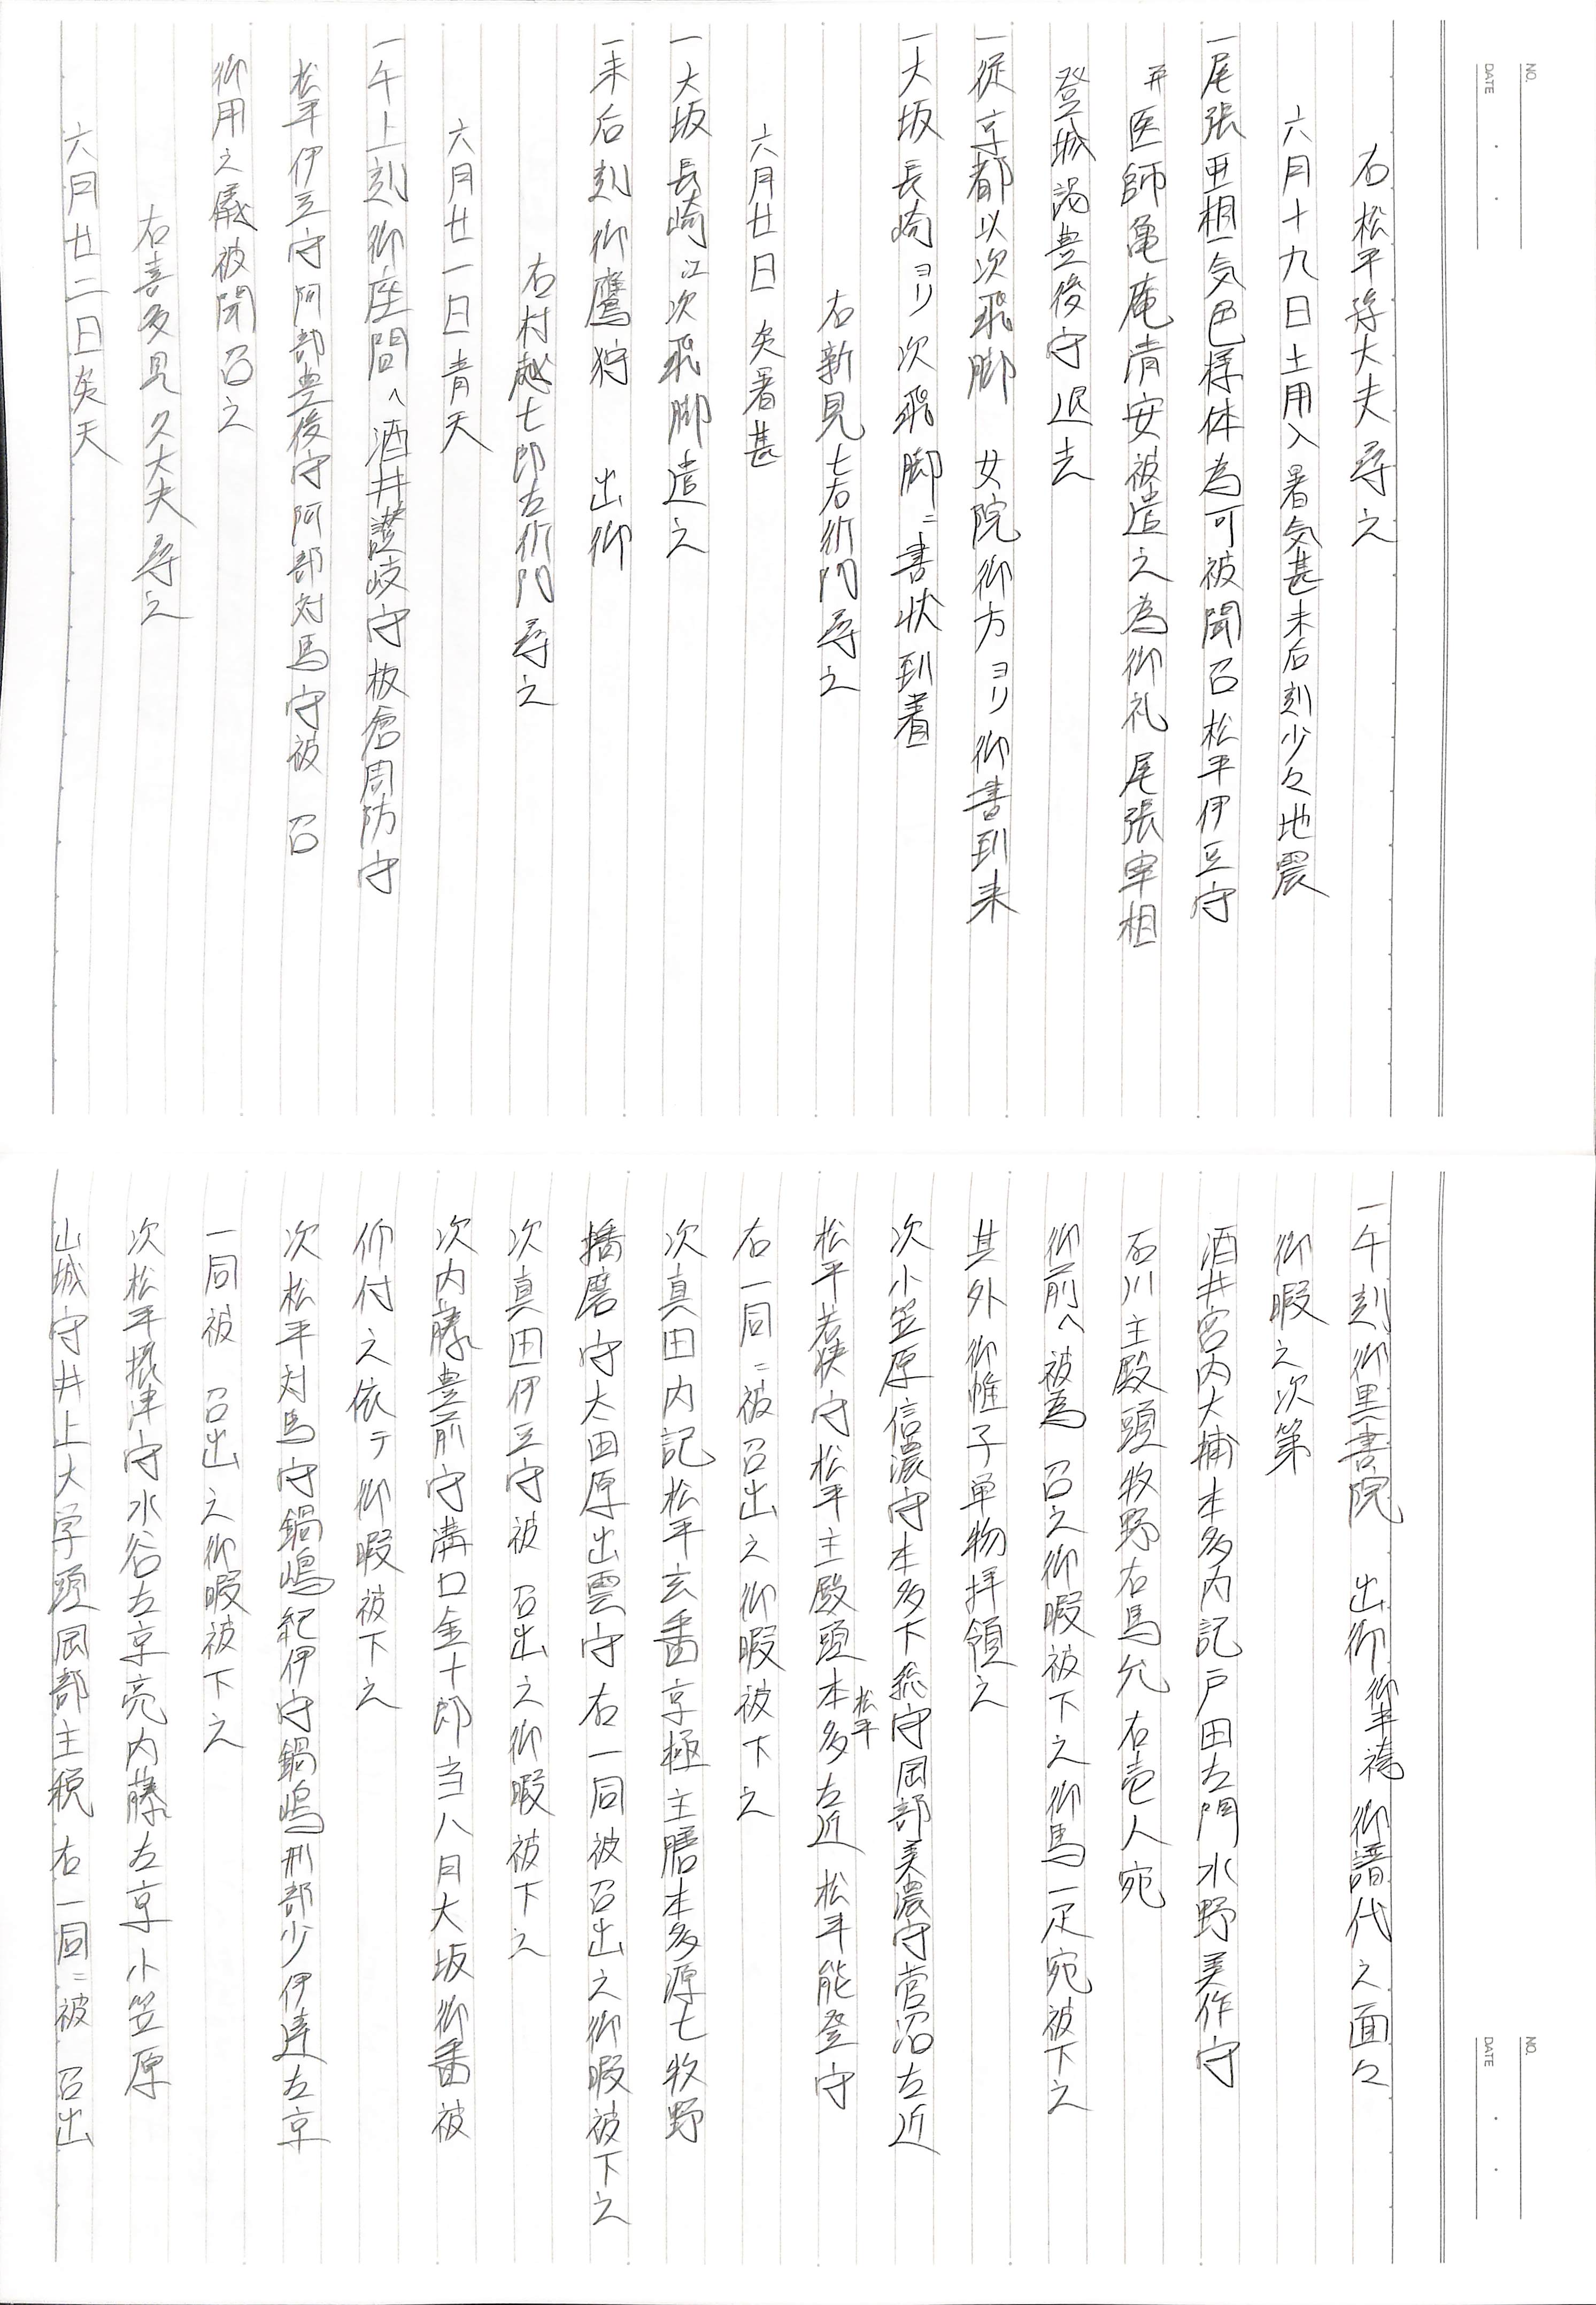 NO.
DATE
右松平孫大夫尋之
六月十九日土用入暑気甚未后刻少々地震
一尾張亜相気色様体為可被聞召松平伊豆守
并医師亀庵清安被遣之為御礼尾張宰相
登城謁豊後守退去
一従京都以次飛脚 女院御方ヨリ御書到来
一大坂長崎ヨリ次飛脚ニ書状到着
右新見七右衛門尋之
六月廿日 炎暑甚
一大坂長崎江次飛脚遣之
一未后刻御鷹狩 出御
右村越七郎左衛門尋之
六月廿一日青天
一午上刻御座間へ酒井讃岐守板倉周防守
松平伊豆守阿部豊後守阿部対馬守被 召
御用之儀被聞召之
右喜多見久大夫尋之
六月廿二日炎天
NO.
DATE
一午刻御黒書院 出御御半袴御譜代之面々
御暇之次第
酒井宮内大補本多内記戸田左門水野美作守
石川主殿頭牧野右馬允右壱人宛
御前へ被為 召之御暇被下之御馬一疋宛被下之
其外御帷子単物拝領之
次小笠原信濃守本多下総守岡部美濃守菅沼左近
松平若狭守松平主殿頭本多左近松平能登守
松平
右一同ニ被召出之御暇被下之
次真田内記松平玄番京極主膳本多源七牧野
播磨守大田原出雲守右一同被召出之御暇被下之
次真田伊豆守被 召出之御暇被下之
次内藤豊前守溝口金十郎当八月大坂御番被
仰付之依テ御暇被下之
次松平対馬守鍋嶋紀伊守鍋嶋刑部少伊達左京
一同被 召出之御暇被下之
次松平摂津守水谷左京亮内藤左京小笠原
山城守井上大学頭岡部主税右一同ニ被 召出